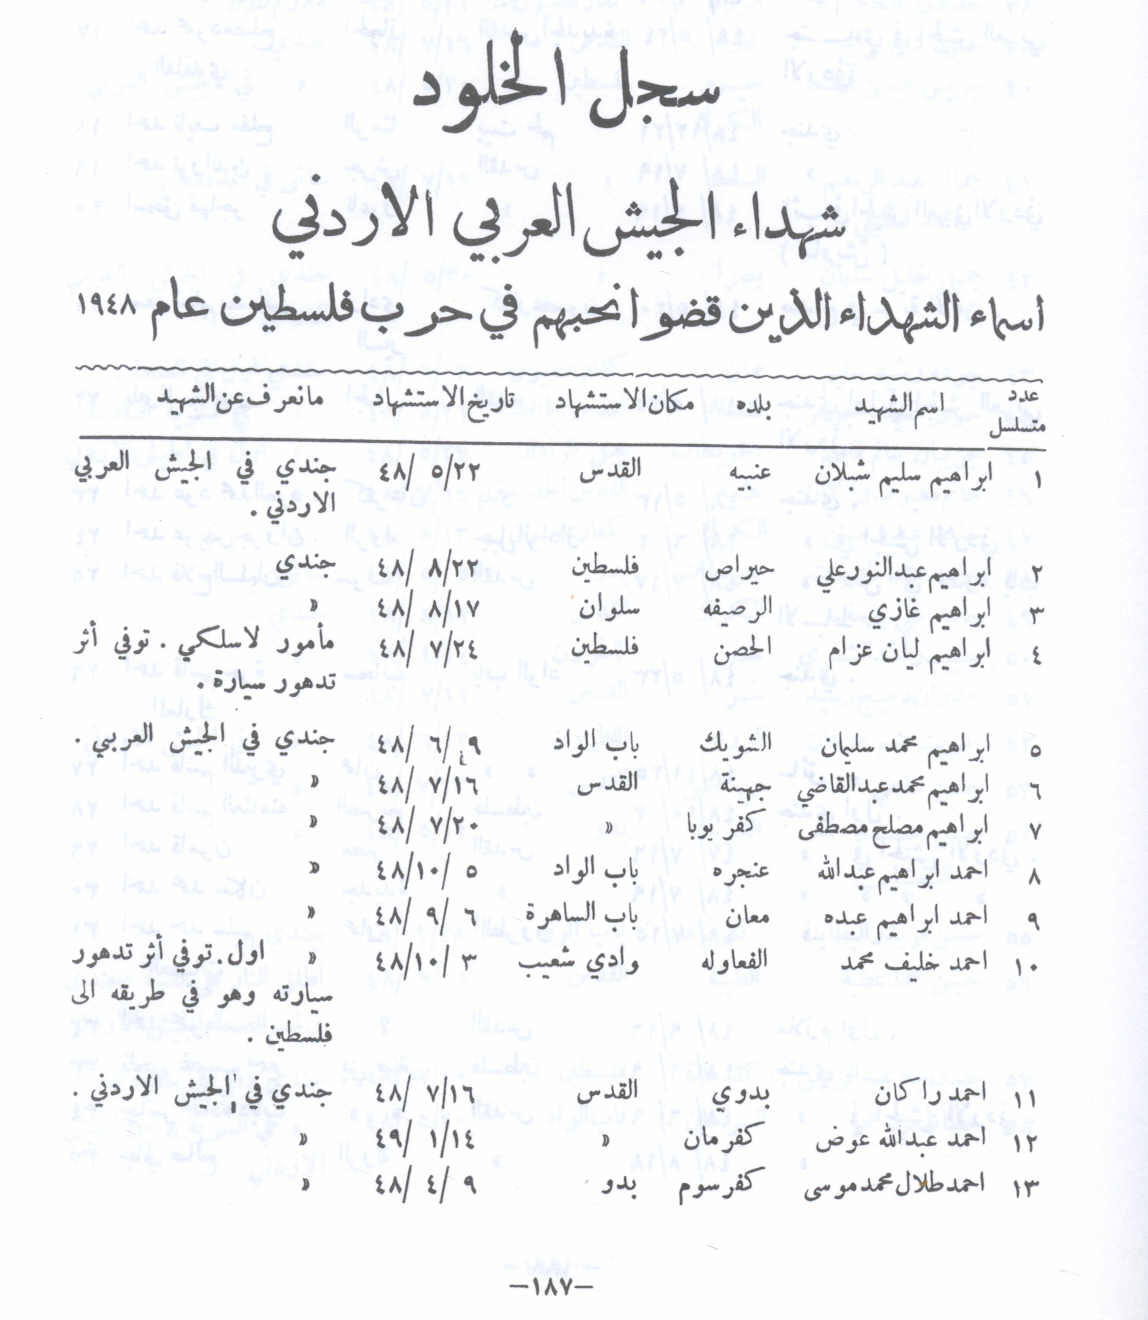 سجل الخلود
شهداء الجيش العربي الاردني
أسماء الشهداء الذين قضوا نحبهم في حرب فلسطين عام ١٩٤٨
عدد متسلسل اسم الشهيد بلده مكان الاستشهاد تاريخ الاستشهاد ما نعرف عن الشهيد
١ ابراهيم سليم شبلان عنبيه القدس ٤٨/ ٥/٢٢ جندي في الجيش العربي
الاردني .
٢ ابراهيم عبدالنور علي حبراص فلسطين ٤٨/ ٨/٢٢ جندي
٣ ابراهيم غازي الرصيفه سلوان ٤٨/ ٨/١٧ »
٤ ابراهيم ليان عزام الحصن فلسطين ٤٨/ ٧/٢٤ مأمور لاسلكي . توفي أثر
تدهور سيارة .
٥ ابراهيم محمد سليمان الشوبك باب الواد ٤٨/ ٦/ ٩ جندي في الجيش العربي .
٦ ابراهيم محمد عبدالقاضي جهينة القدس ٤٨/ ٧/١٦ »
٧ ابراهيم مصلح مصطفى كفر يوبا » ٤٨/ ٧/٢٠ »
٨ احمد ابراهيم عبدالله عنجره باب الواد ٤٨/١٠/ ٥ »
٩ احمد ابراهيم عبده معان باب الساهرة ٤٨/ ٩/ ٦ »
١٠ احمد خليف محمد الفعاوله وادي شعيب ٤٨/١٠/ ٣ » اول . توفي أثر تدهور
سيارته وهو في طريقه الى
فلسطين .
١١ احمد راكان بدوي القدس ٤٨/ ٧/١٦ جندي في الجيش الاردني .
١٢ احمد عبدالله عوض كفرمان » ٤٩/ ١/١٤ »
١٣ احمد طلال محمد موسى كفرسوم بدو ٤٨/ ٤/ ٩ »
—١٨٧—